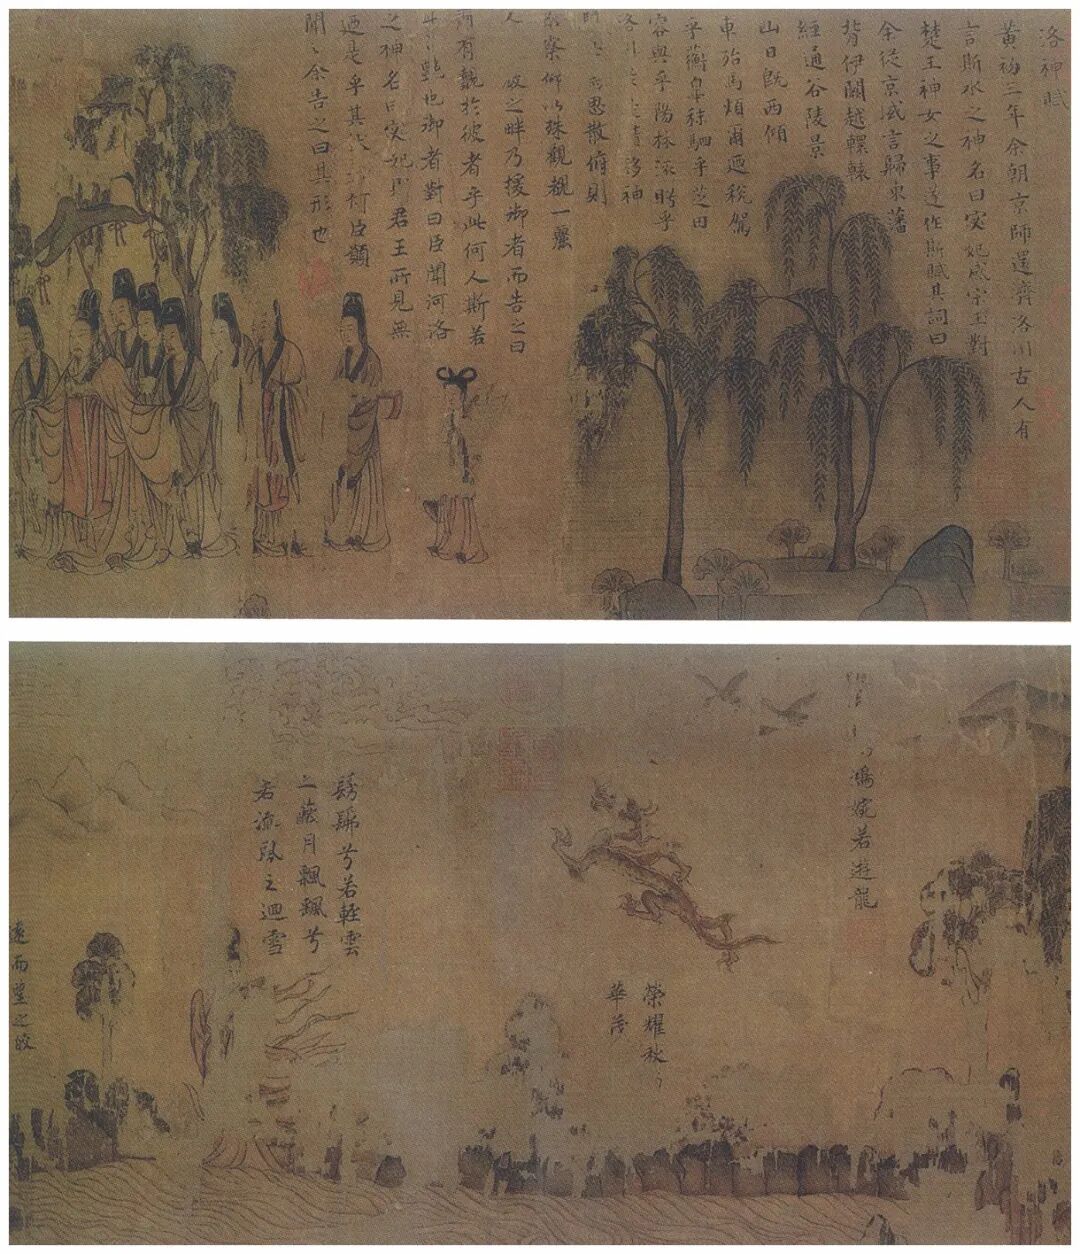 洛神賦
黃初三年余朝京師還濟洛川古人有
言斯水之神名曰宓妃感宋玉對
楚王神女之事遂作斯賦其詞曰
余從京域言歸東藩
背伊闕越轘轅
經通谷陵景
山日旣西傾
車殆馬煩爾迺稅駕
乎蘅皋秣駟乎芝田
容與乎陽林流眄乎
洛川 精移神
思散俯則
察仰以殊觀覩一麗
人 之畔乃援御者而告之曰
有覿於彼者乎此何人斯若
此 豔也御者對曰臣聞河洛
之神名曰宓妃 君王所見無
迺是乎其 何臣願
聞之余告之曰其形也
鴻婉若遊龍
榮耀秋
華茂
髣髴兮若輕雲
之蔽月飄飄兮
若流風之迴雪
遠而望之皎